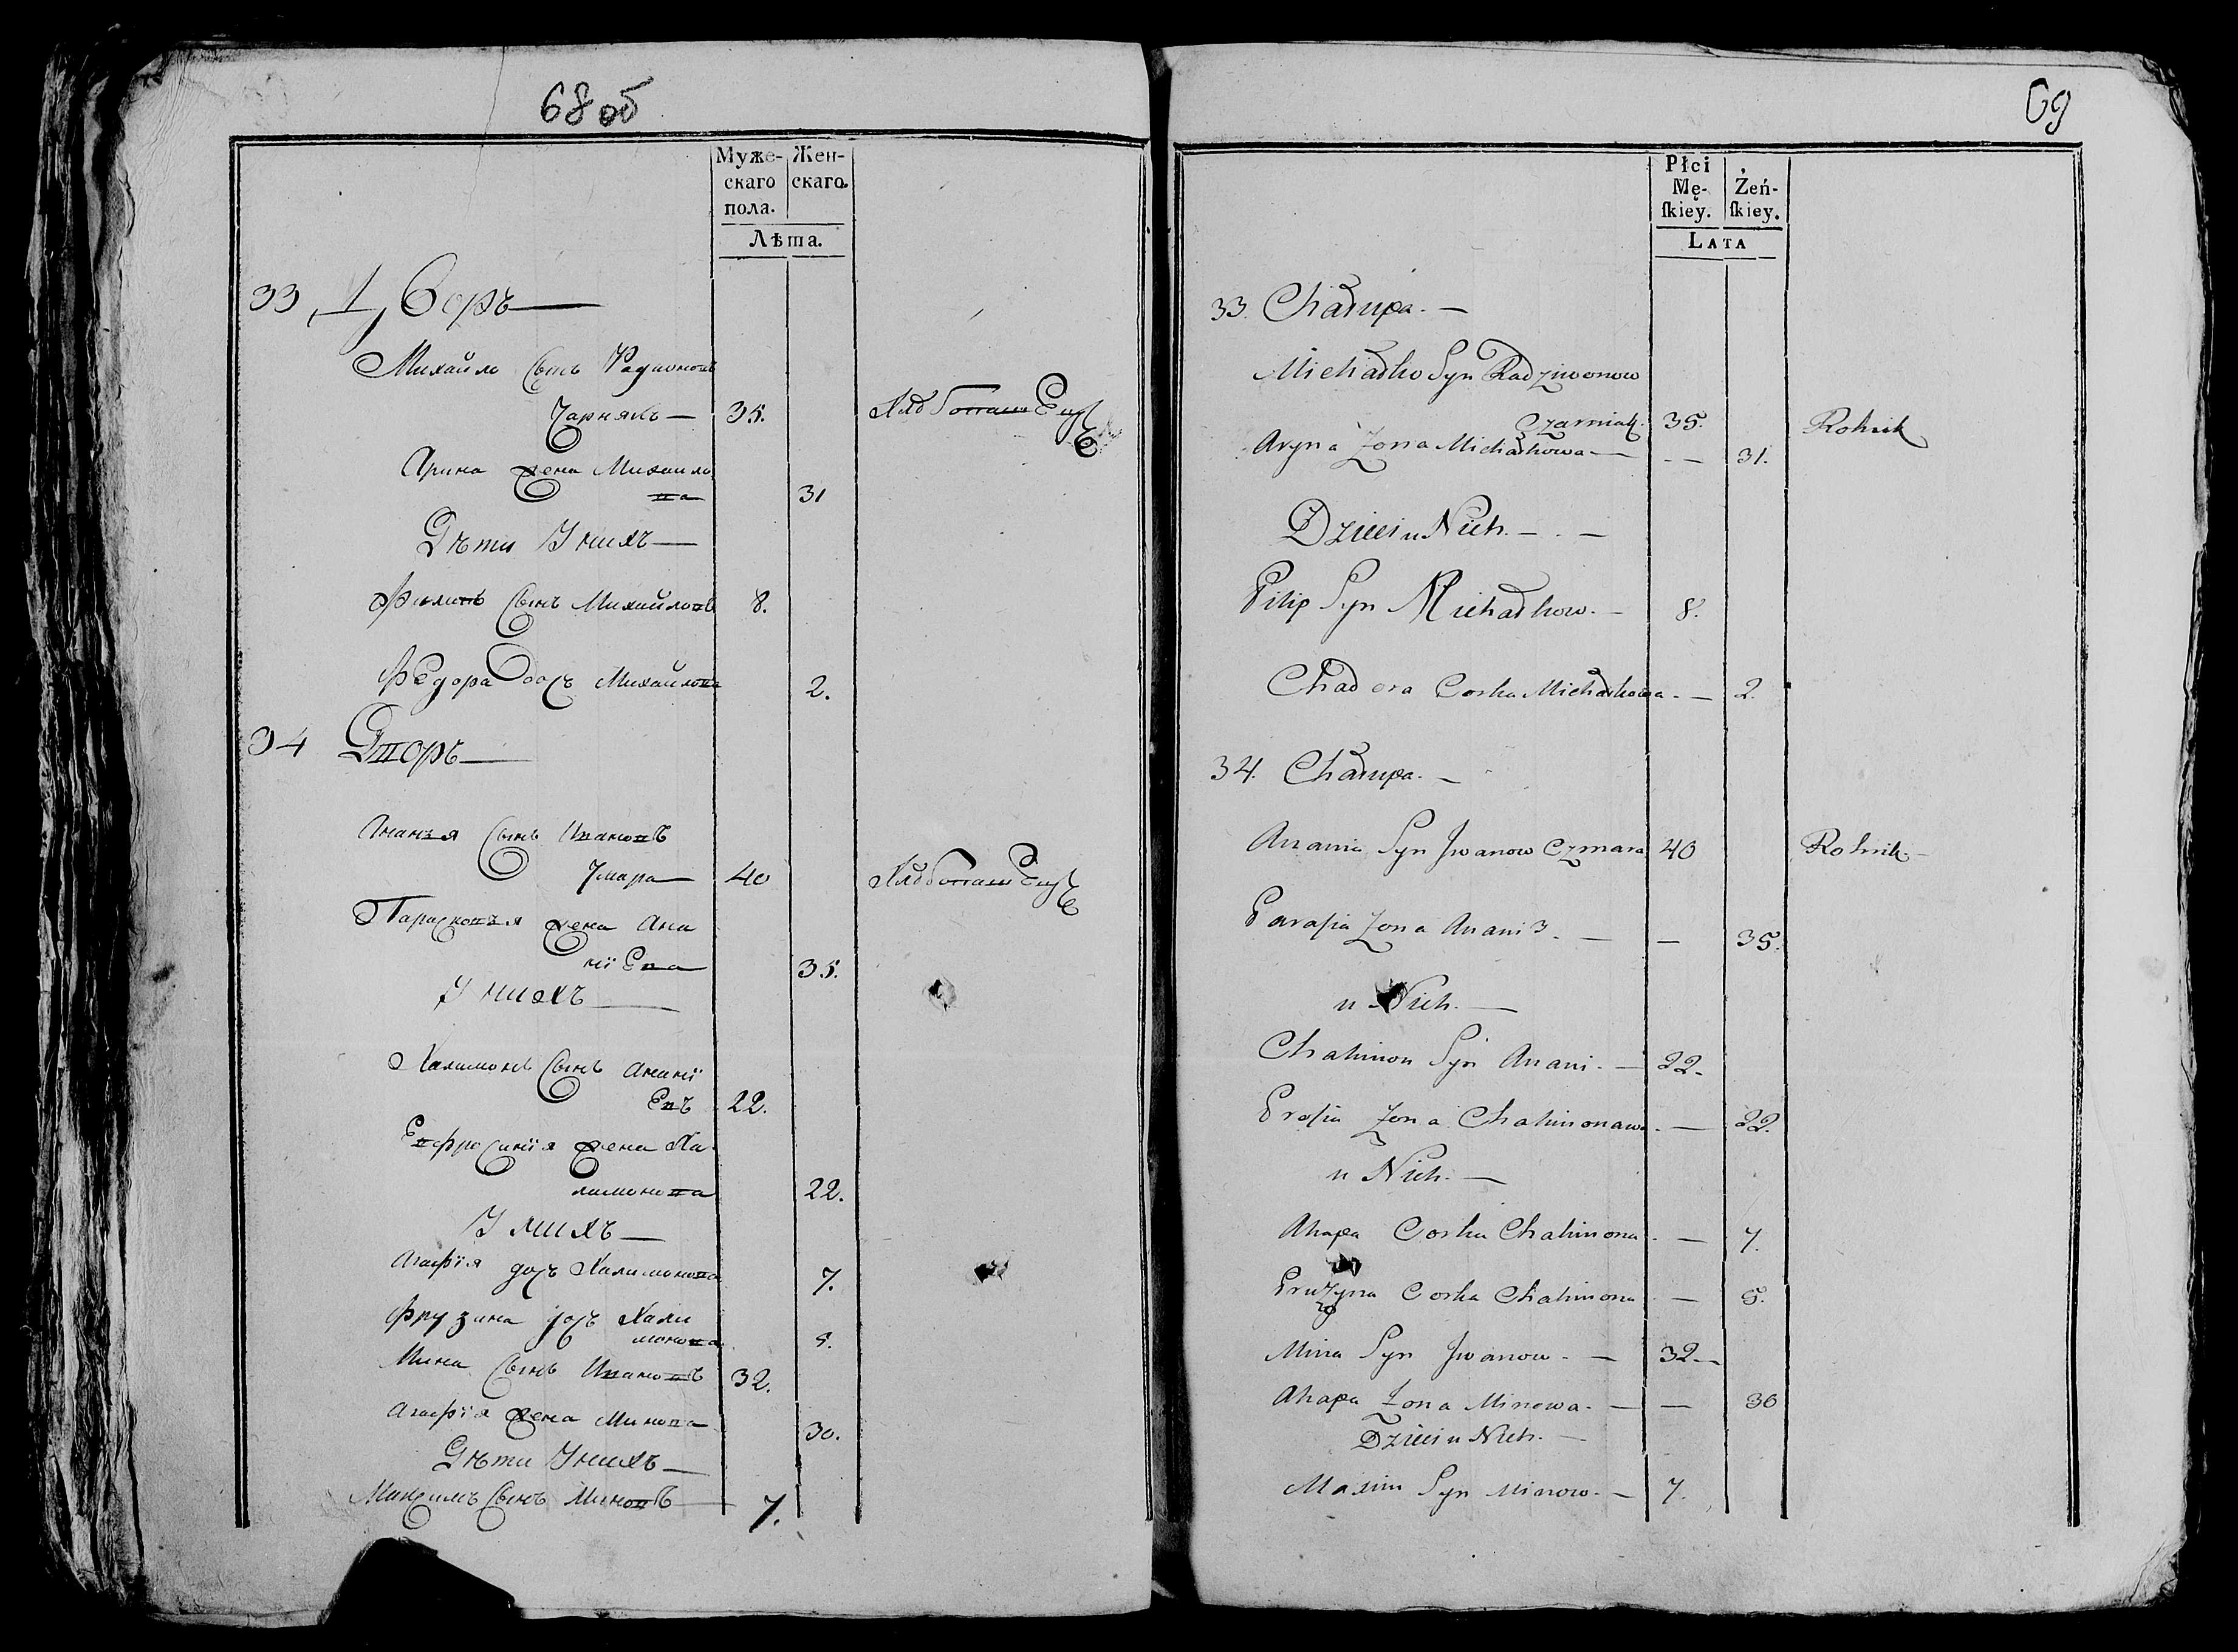 68 об
Муже- Жен-
скаго скаго.
пола.
Лѣта.
33 Дворъ
Михайло Сынъ Радионовъ
Чарнякъ 35. Хлѣбопашецъ
Арина жена Михайло
ва 31
Дѣти У нихъ
Филипъ Сынъ Михайловъ 8.
Федора дочь Михайлова 2.
34 Дворъ
Ананья Сынъ Ивановъ
Чмара 40 Хлѣбопашецъ
Парасковья жена Ана
нїева 35.
У нихъ
Халимонъ Сынъ Ананї
евъ 22.
Евфросинїя жена Ха-
лимонова 22.
У нихъ
Агафїя дочь Халимонова 7.
Фрузина дочь Хали
монова 5.
Мина Сынъ Ивановъ 32.
Агафїя жена Минова 30.
Дѣти У нихъ
Максимъ Сынъ Миновъ 7.
69
Płci
Mę- Żeń-
ſkiey. ſkiey.
LATA
33. Chałupa.
Michałko Syn Radziwonow
Czarniak. 35. Rolnik
Aryna Zona Michałkowa 31.
Dzieci u Nich.
Pilip Syn Michałkow. 8.
Chadora Corka Michałkowa. 2.
34. Chałupa.
Anania Syn Jwanow Czmara 40 Rolnik
Paraſia Zona Anani 35.
u Nich.
Chalimon Syn Anani. 22.
Praſia Zona Chalimonawa. 22.
u Nich.
Ahapa Corka Chalimona. 7.
Pruzyna Corka Chalimona 5.
Mina Syn Jwanow. 32
Ahapa Zona Minowa. 30
Dzieci u Nich.
Maxim Syn Minow. 7.